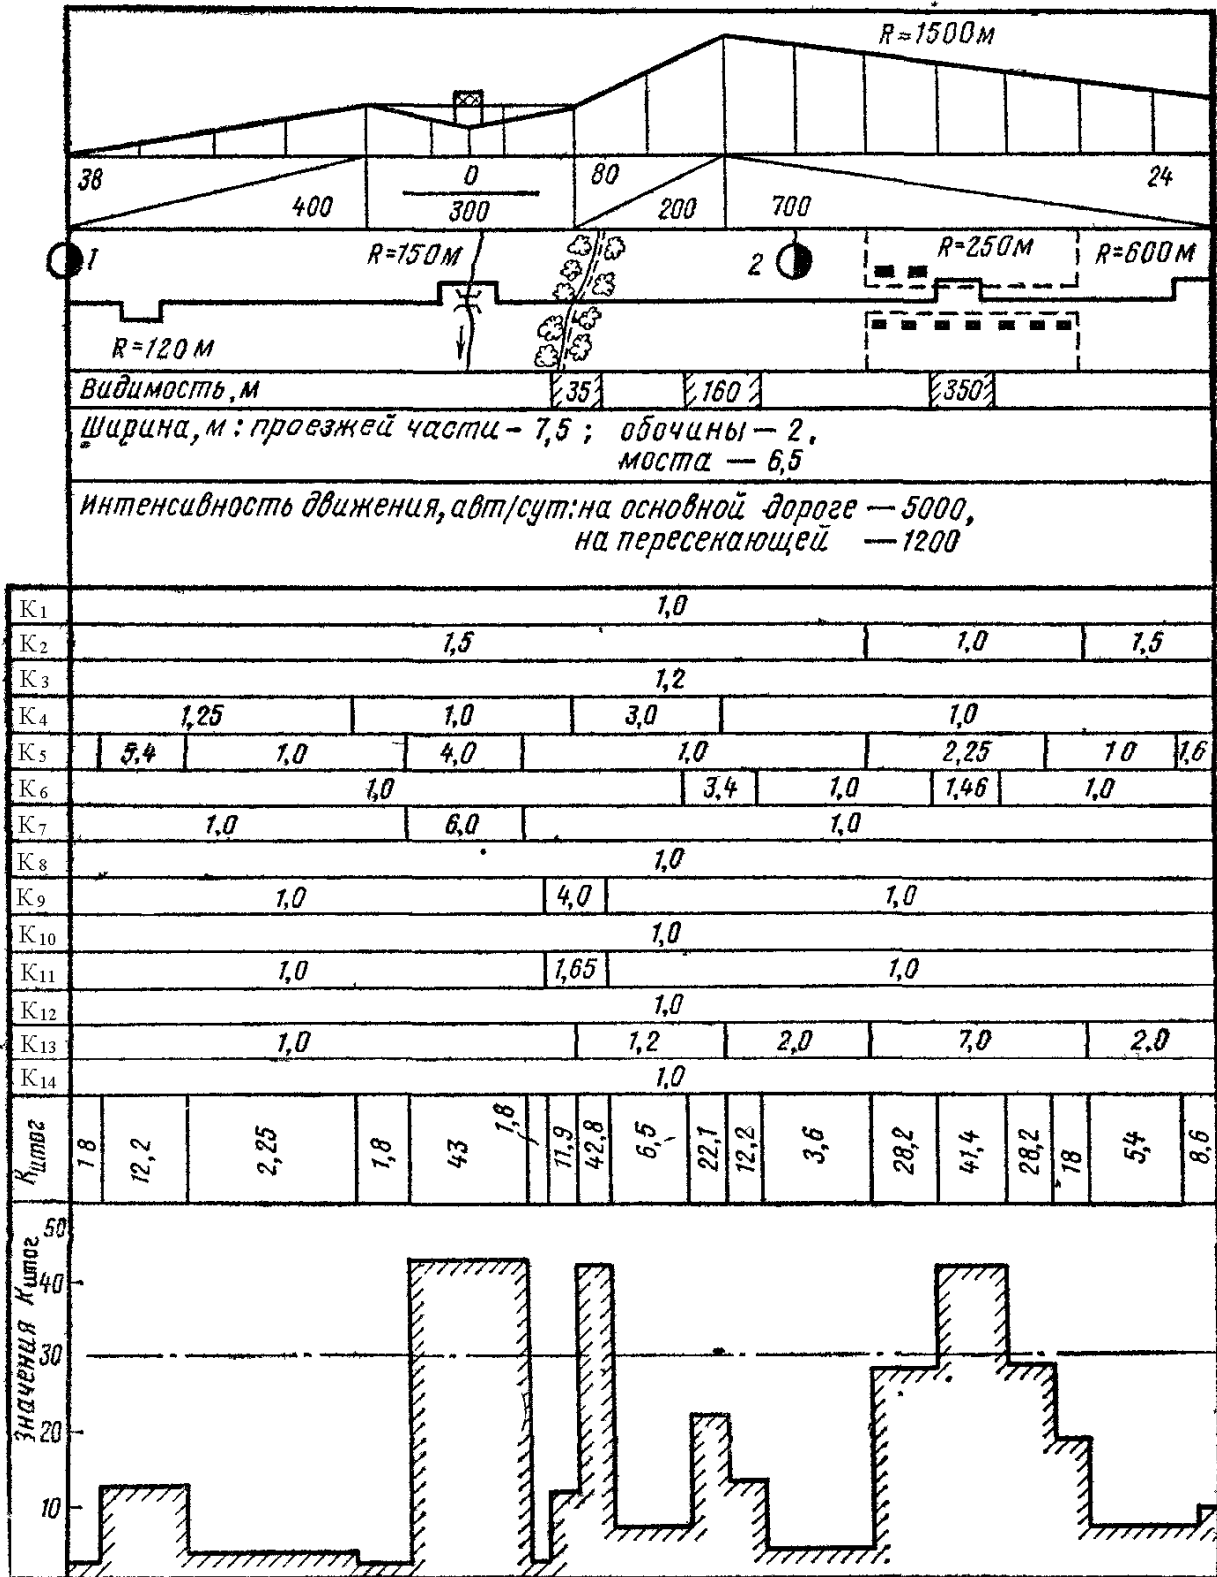 R=1500м
38
400
0
300
80
200
700
24
1
R=150м
2
R=250м
R=600м
R=120 м
Видимость, м
35
160
350
Ширина, м: проезжей части – 7,5; обочины – 2,
моста — 6,5
Интенсивность движения, авт/сут: на основной дороге — 5000,
на пересекающей — 1200
К1 1,0
К2 1,5 1,0 1,5
К3 1,2
К4 1,25 1,0 3,0 1,0
К5 5,4 1,0 4,0 1,0 2,25 1 0 1,6
К6 1,0 3,4 1,0 1,46 1,0
К7 1,0 6,0 1,0
К8 1,0
К9 1,0 4,0 1,0
К10 1,0
К11 1,0 1,65 1,0
К12 1,0
К13 1,0 1,2 2,0 7,0 2,0
К14 1,0
Kитог 1 8 12,2 2,25 1,8 43 1,8 11,9 42,8 6,5 22,1 12,2 3,6 28,2 41,4 28,2 18 5,4 8,6
Значения Kитог
50
40
30
20
10